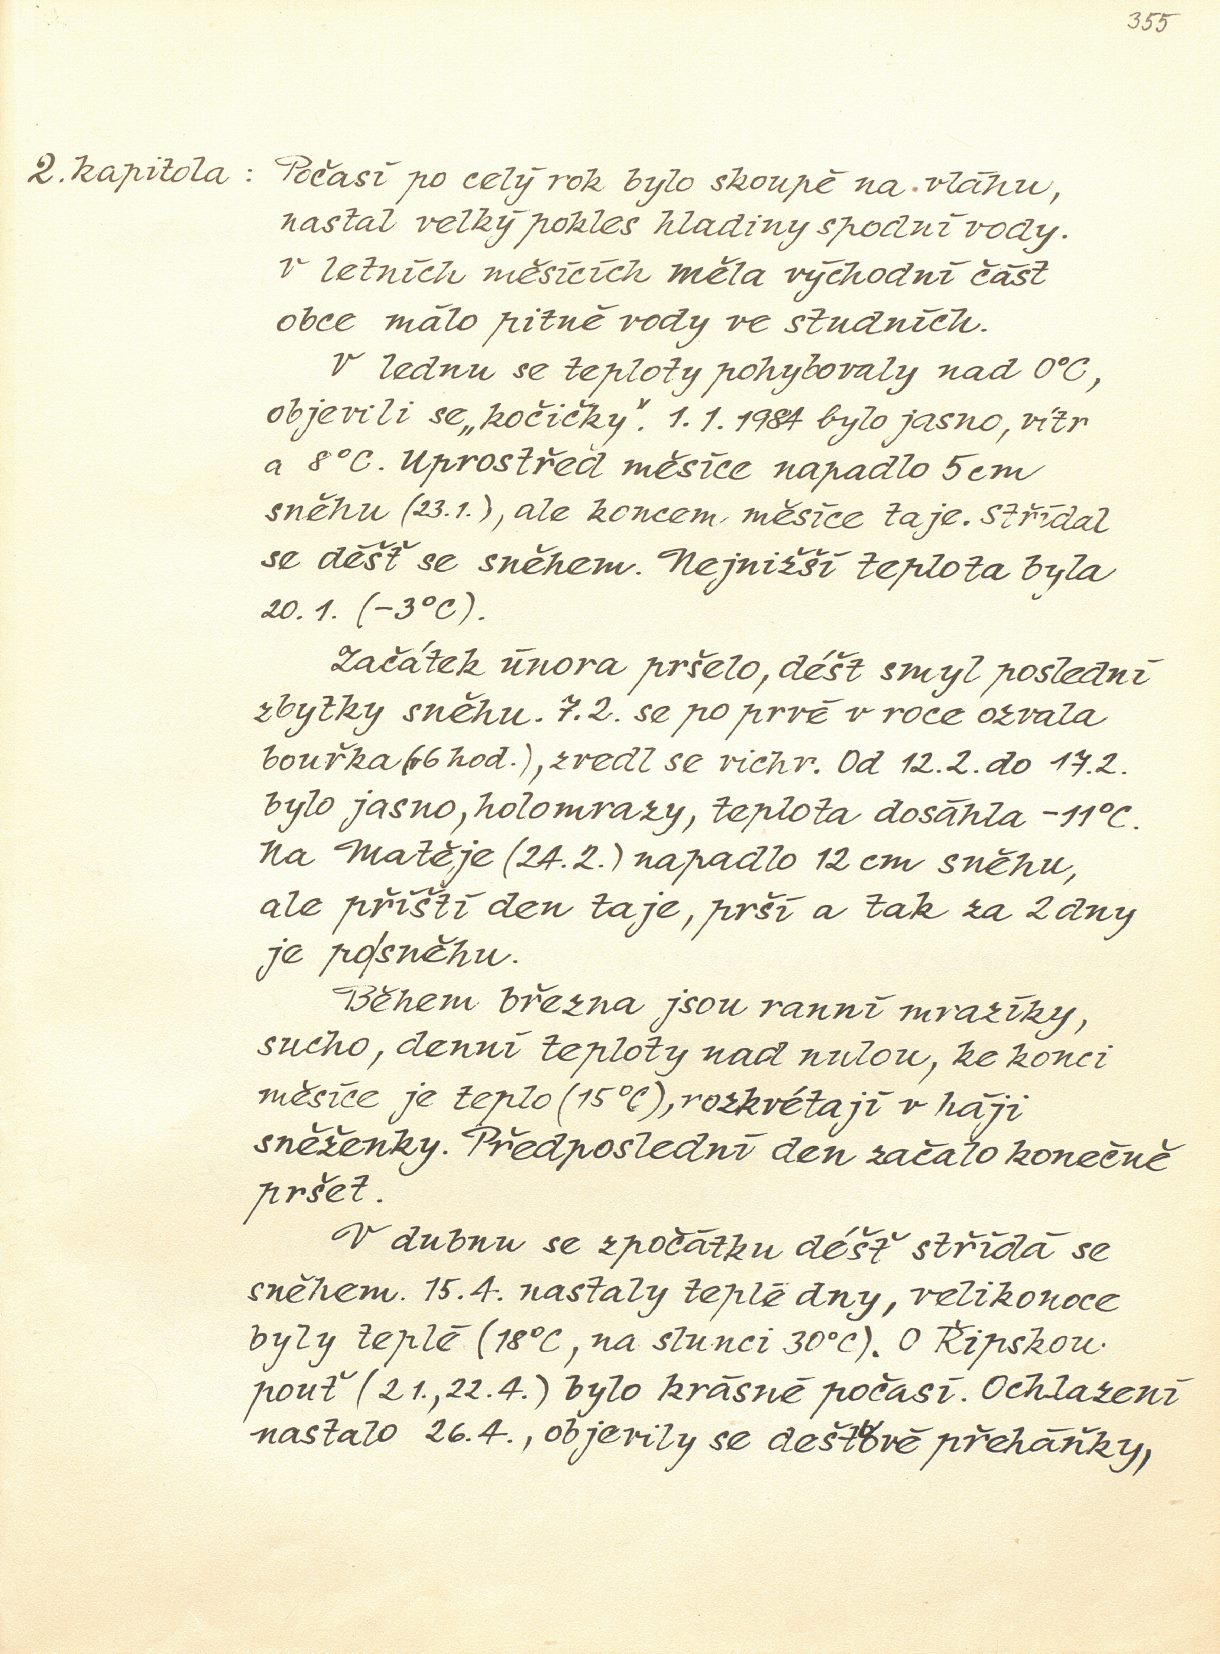 355
2. kapitola : Počasí po celý rok bylo skoupé na vláhu,
nastal velký pokles hladiny spodní vody.
V letních měsících měla východní část
obce málo pitné vody ve studních.
V lednu se teploty pohybovaly nad 0°C,
objevili se „kočičky". 1.1.1984 bylo jasno, vítr
a 8°C. Uprostřed měsíce napadlo 5 cm
sněhu (23.1.), ale koncem měsíce taje. Střídal
se déšť se sněhem. Nejnižší teplota byla
20.1. (-3°C).
Začátek února pršelo, déšt smyl poslední
zbytky sněhu. 7.2. se po prvé v roce ozvala
bouřka (16 hod.), zvedl se vichr. Od 12.2. do 17.2.
bylo jasno, holomrazy, teplota dosáhla -11°C.
Na Matěje (24.2.) napadlo 12 cm sněhu,
ale příští den taje, prší a tak za 2 dny
je po/sněhu.
Během března jsou ranní mrazíky,
sucho, denní teploty nad nulou, ke konci
měsíce je teplo (15°C), rozkvétají v háji
sněženky. Předposlední den začalo konečně
pršet.
V dubnu se zpočátku déšť střídá se
sněhem. 15.4. nastaly teplé dny, velikonoce
byly teplé (18°C, na slunci 30°C). O Řipskou
pouť (21., 22.4.) bylo krásné počasí. Ochlazení
nastalo 26.4., objevily se dešťové přeháňky,